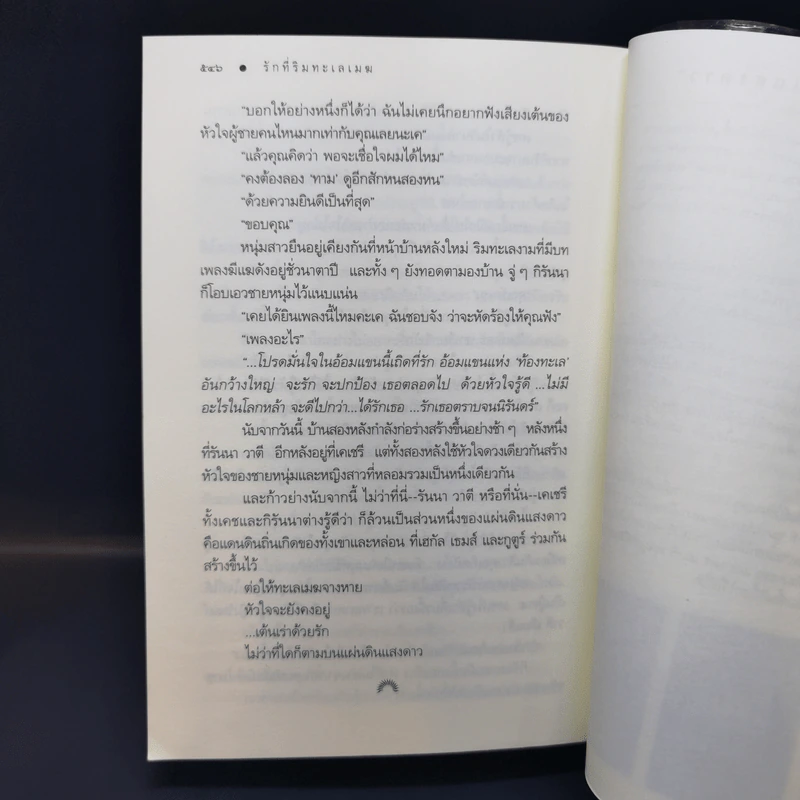 ๕๔๖ ● รักที่ริมทะเลเมฆ
“บอกให้อย่างหนึ่งก็ได้ว่า ฉันไม่เคยนึกอยากฟังเสียงเต้นของ
หัวใจผู้ชายคนไหนมากเท่ากับคุณเลยนะเค”
“แล้วคุณคิดว่า พอจะเชื่อใจผมได้ไหม”
“คงต้องลอง ‘ทาม’ ดูอีกสักหนสองหน”
“ด้วยความยินดีเป็นที่สุด”
“ขอบคุณ”
หนุ่มสาวยืนอยู่เคียงกันที่หน้าบ้านหลังใหม่ ริมทะเลงามที่มีบท
เพลงฆีแฆดังอยู่ชั่วนาตาปี และทั้ง ๆ ยังทอดตามองบ้าน จู่ ๆ กิรันนา
ก็โอบเอวชายหนุ่มไว้แนบแน่น
“เคยได้ยินเพลงนี้ไหมคะเค ฉันชอบจัง ว่าจะหัดร้องให้คุณฟัง”
“เพลงอะไร”
“...โปรดมั่นใจในอ้อมแขนนี้เถิดที่รัก อ้อมแขนแห่ง ‘ท้องทะเล’
อันกว้างใหญ่ จะรัก จะปกป้อง เธอตลอดไป ด้วยหัวใจรู้ดี ...ไม่มี
อะไรในโลกหล้า จะดีไปกว่า...ได้รักเธอ ...รักเธอตราบจนนิรันดร์”
นับจากวันนี้ บ้านสองหลังกำลังก่อร่างสร้างขึ้นอย่างช้า ๆ หลังหนึ่ง
ที่รันนา วาตี อีกหลังอยู่ที่เคเชรี แต่ทั้งสองหลังใช้หัวใจดวงเดียวกันสร้าง
หัวใจของชายหนุ่มและหญิงสาวที่หลอมรวมเป็นหนึ่งเดียวกัน
และก้าวย่างนับจากนี้ ไม่ว่าที่นี่--รันนา วาตี หรือที่นั่น--เคเชรี
ทั้งเคชและกิรันนาต่างรู้ดีว่า ก็ล้วนเป็นส่วนหนึ่งของแผ่นดินแสงดาว
คือแดนดินถิ่นเกิดของทั้งเขาและหล่อน ที่เฮกัล เธมส์ และกูตูร์ ร่วมกัน
สร้างขึ้นไว้
ต่อให้ทะเลเมฆจางหาย
หัวใจจะยังคงอยู่
...เต้นเร่าด้วยรัก
ไม่ว่าที่ใดก็ตามบนแผ่นดินแสงดาว